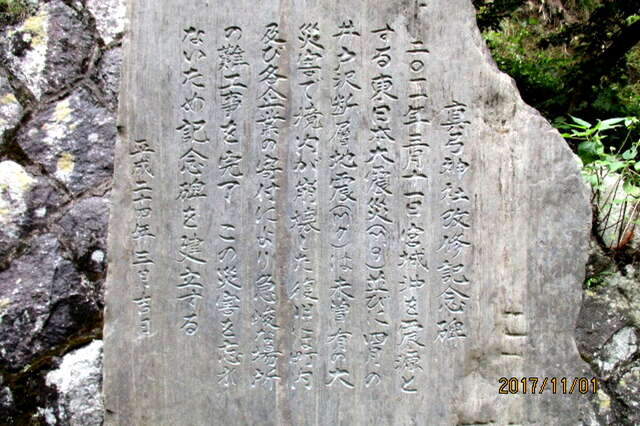 弓神社改修記念碑
二〇一一年三月十一日宮城沖を震源と
する東日本大震災(M9)並びに四月の
井戸沢断層地震(M7)は未曽有の大
災害で境内が崩壊した復旧は町内
及び各企業の寄付により急峻な場所
の難工事を完了 この災害を忘れ
ないため記念碑を建立する
平成二十四年三月吉日
2017/11/01